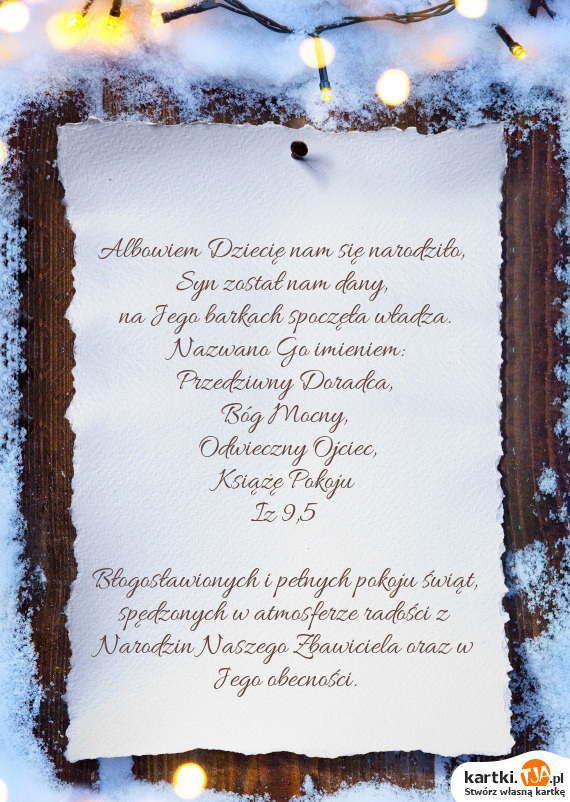 Albowiem Dziecię nam się narodziło,
Syn został nam dany,
na Jego barkach spoczęła władza.
Nazwano Go imieniem:
Przedziwny Doradca,
Bóg Mocny,
Odwieczny Ojciec,
Książę Pokoju
Iz 9,5
Błogosławionych i pełnych pokoju świąt,
spędzonych w atmosferze radości z
Narodzin Naszego Zbawiciela oraz w
Jego obecności.
kartki.TJA.pl
Stwórz własną kartkę